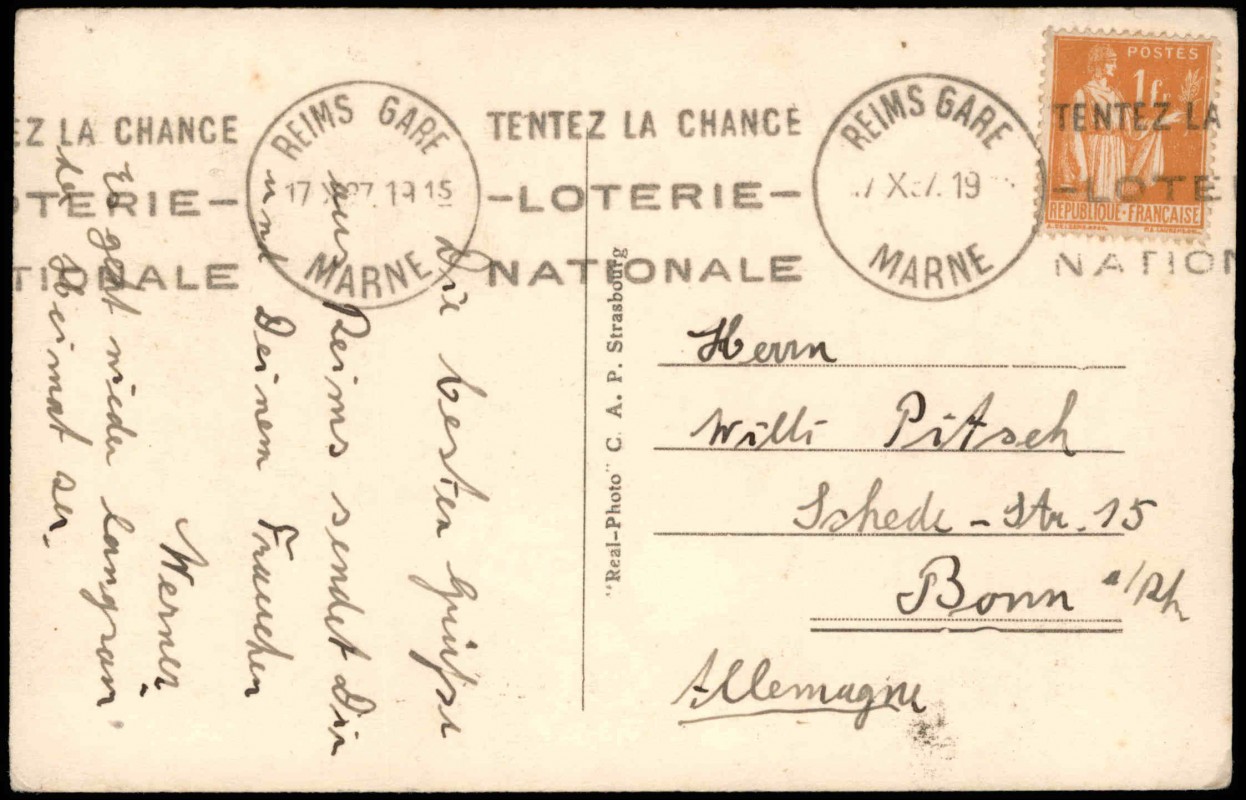 EZ LA CHANCE
OTERIE-
TIONALE
REIMS GARE
17 X 37. 19 15
MARNE
TENTEZ LA CHANCE
-LOTERIE-
NATIONALE
REIMS GARE
X 19
MARNE
POSTES
1 fr
REPUBLIQUE-FRANCAISE
TENTEZ LA
-LOTE
NATION
Die besten Grüsse
aus Reims sendet Dir
und Deinem Frauchen
Werner
Es geht wieder langsam
Heimat
"Real-Photo" C. A. P. Strasbourg
Herrn
Willi Pitsch
Schede-Str. 15
Bonn a/Rh
Allemagne